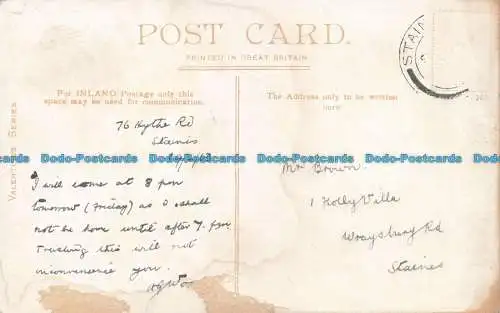 POST CARD.
PRINTED IN GREAT BRITAIN
For INLAND Postage only this
space may be used for communication.
The Address only to be written
here.
VALENTINES SERIES
STAIN
76 Hythe Rd
Staines
Mr Brown.
1 Holly Villa
Wraysbury Rd
Staines
I will come at 8 pm
tomorrow (Friday) as I shall
not be home until after 7. pm
Trusting this will not
inconvenience you.
Dodo-Postcards Dodo-Postcards Dodo-Postcards Dodo-Postcards
Dodo-Postcards Dodo-Postcards Dodo-Postcards Dodo-Postcards